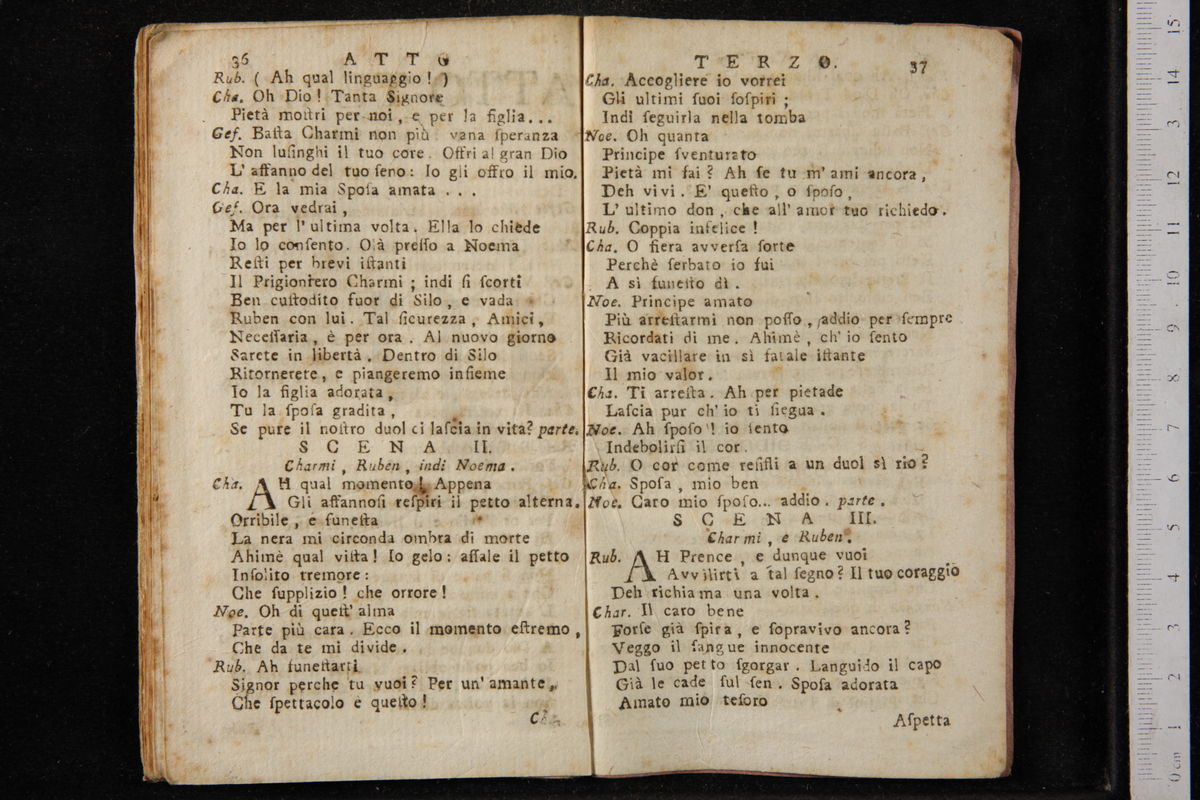 36 ATTO
Rub. ( Ah qual linguaggio! )
Cha. Oh Dio! Tanta Signore
Pietà moſtri per noi, e per la figlia...
Geſ. Baſta Charmi non più vana ſperanza
Non luſinghi il tuo core. Offri al gran Dio
L' affanno del tuo ſeno: Io gli offro il mio.
Cha. E la mia Spoſa amata . . .
Geſ. Ora vedrai,
Ma per l' ultima volta. Ella lo chiede
Io lo conſento. Olà preſſo a Noema
Reſti per brevi iſtanti
Il Prigioniero Charmi; indi ſi ſcorti
Ben cuſtodito fuor di Silo, e vada
Ruben con lui. Tal ſicurezza, Amici,
Neceſſaria, è per ora. Al nuovo giorno
Sarete in libertà. Dentro di Silo
Ritornerete, e piangeremo inſieme
Io la figlia adorata,
Tu la ſpoſa gradita,
Se pure il noſtro duol ci laſcia in vita? parte.
SCENA II.
Charmi, Ruben, indi Noema.
Cha. AH qual momento! Appena
Gli affannoſi reſpiri il petto alterna.
Orribile, e funeſta
La nera mi circonda ombra di morte
Ahimè qual viſta! Io gelo: aſſale il petto
Inſolito tremore:
Che ſupplizio! che orrore!
Noe. Oh di queſt' alma
Parte più cara. Ecco il momento eſtremo,
Che da te mi divide.
Rub. Ah funeſtarti
Signor perche tu vuoi? Per un' amante,
Che ſpettacolo è queſto!
Cha.
TERZO. 37
Cha. Accogliere io vorrei
Gli ultimi ſuoi ſoſpiri;
Indi ſeguirla nella tomba
Noe. Oh quanta
Principe ſventurato
Pietà mi fai? Ah ſe tu m' ami ancora,
Deh vivi. E' queſto, o ſpoſo,
L' ultimo don, che all' amor tuo richiedo.
Rub. Coppia infelice!
Cha. O fiera avverſa ſorte
Perchè ſerbato io fui
A sì funeſto dì.
Noe. Principe amato
Più arreſtarmi non poſſo, addio per ſempre
Ricordati di me. Ahimè, ch' io ſento
Già vacillare in sì fatale iſtante
Il mio valor.
Cha. Ti arreſta. Ah per pietade
Laſcia pur ch' io ti ſiegua.
Noe. Ah ſpoſo! io ſento
Indebolirſi il cor.
Rub. O cor come reſiſti a un duol sì rio?
Cha. Spoſa, mio ben
Noe. Caro mio ſpoſo... addio. parte.
SCENA III.
Charmi, e Ruben.
Rub. AH Prence, e dunque vuoi
Avvilirti a tal ſegno? Il tuo coraggio
Deh richiama una volta.
Char. Il caro bene
Forſe già ſpira, e ſopravivo ancora?
Veggo il ſangue innocente
Dal ſuo petto ſgorgar. Languido il capo
Già le cade ſul ſen. Spoſa adorata
Amato mio teſoro
Aſpetta
0 cm 1 2 3 4 5 6 7 8 9 10 11 12 13 14 15